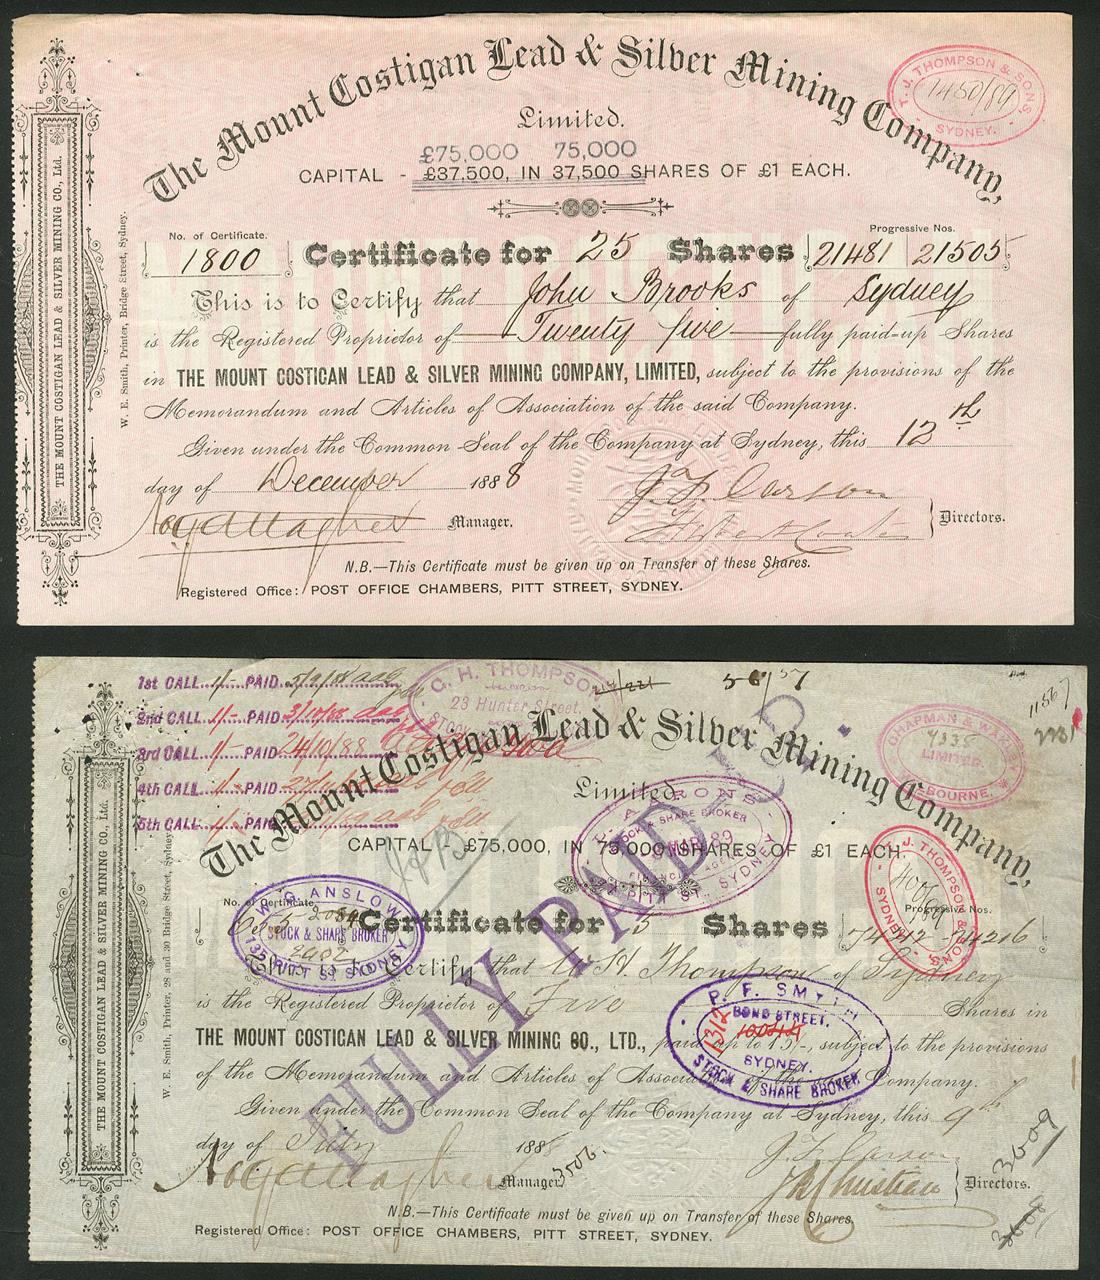 The Mount Costigan Lead & Silver Mining Company,
Limited.
T. J. THOMPSON & SONS,
1450/89
SYDNEY.
£75,000 75,000
CAPITAL - £37,500, IN 37,500 SHARES OF £1 EACH.
No. of Certificate. Progressive Nos.
1800 Certificate for 25 Shares 21481 21505
This is to Certify that John Brooks of Sydney
is the Registered Proprietor of Twenty five fully paid-up Shares
in THE MOUNT COSTIGAN LEAD & SILVER MINING COMPANY, LIMITED, subject to the provisions of the
Memorandum and Articles of Association of the said Company.
Given under the Common Seal of the Company at Sydney, this 12th
day of December 1888
Manager. Directors.
N.B.—This Certificate must be given up on Transfer of these Shares.
Registered Office: POST OFFICE CHAMBERS, PITT STREET, SYDNEY.
THE MOUNT COSTIGAN LEAD & SILVER MINING CO., Ltd.
W. E. Smith, Printer, Bridge Street, Sydney.
1st CALL 1/- PAID 3/9/88
2nd CALL 1/- PAID 3/10/88
3rd CALL 1/- PAID 24/10/88
4th CALL 1/- PAID
5th CALL 1/- PAID
G. H. THOMPSON
23 Hunter Street.
STOCK
56/57
11567
CHAPMAN & WAXLEY
LIMITED.
MELBOURNE.
The Mount Costigan Lead & Silver Mining Company,
Limited.
CAPITAL - £75,000, IN 75,000 SHARES OF £1 EACH.
AARONS
STOCK & SHARE BROKER
MAR 89
PITT ST. SYDNEY
J. THOMPSON & SONS
SYDNEY.
No. of Certificate. Progressive Nos.
W. G. ANSLOW
STOCK & SHARE BROKER
PITT ST SYDNEY
Certificate for 5 Shares 74212 74216
This is to Certify that G H Thompson of Sydney
is the Registered Proprietor of Five Shares in
THE MOUNT COSTIGAN LEAD & SILVER MINING CO., LTD., paid up to 15/-, subject to the provisions
of the Memorandum and Articles of Association of the Company.
Given under the Common Seal of the Company at Sydney, this 9th
day of July 1888
P. F. SMYTH
BOND STREET.
1312
SYDNEY.
STOCK & SHARE BROKER
FULLY PAID UP
3506.
3609
Manager. Directors.
N.B.—This Certificate must be given up on Transfer of these Shares.
Registered Office: POST OFFICE CHAMBERS, PITT STREET, SYDNEY.
THE MOUNT COSTIGAN LEAD & SILVER MINING CO., Ltd.
W. E. Smith, Printer, 28 and 30 Bridge Street, Sydney